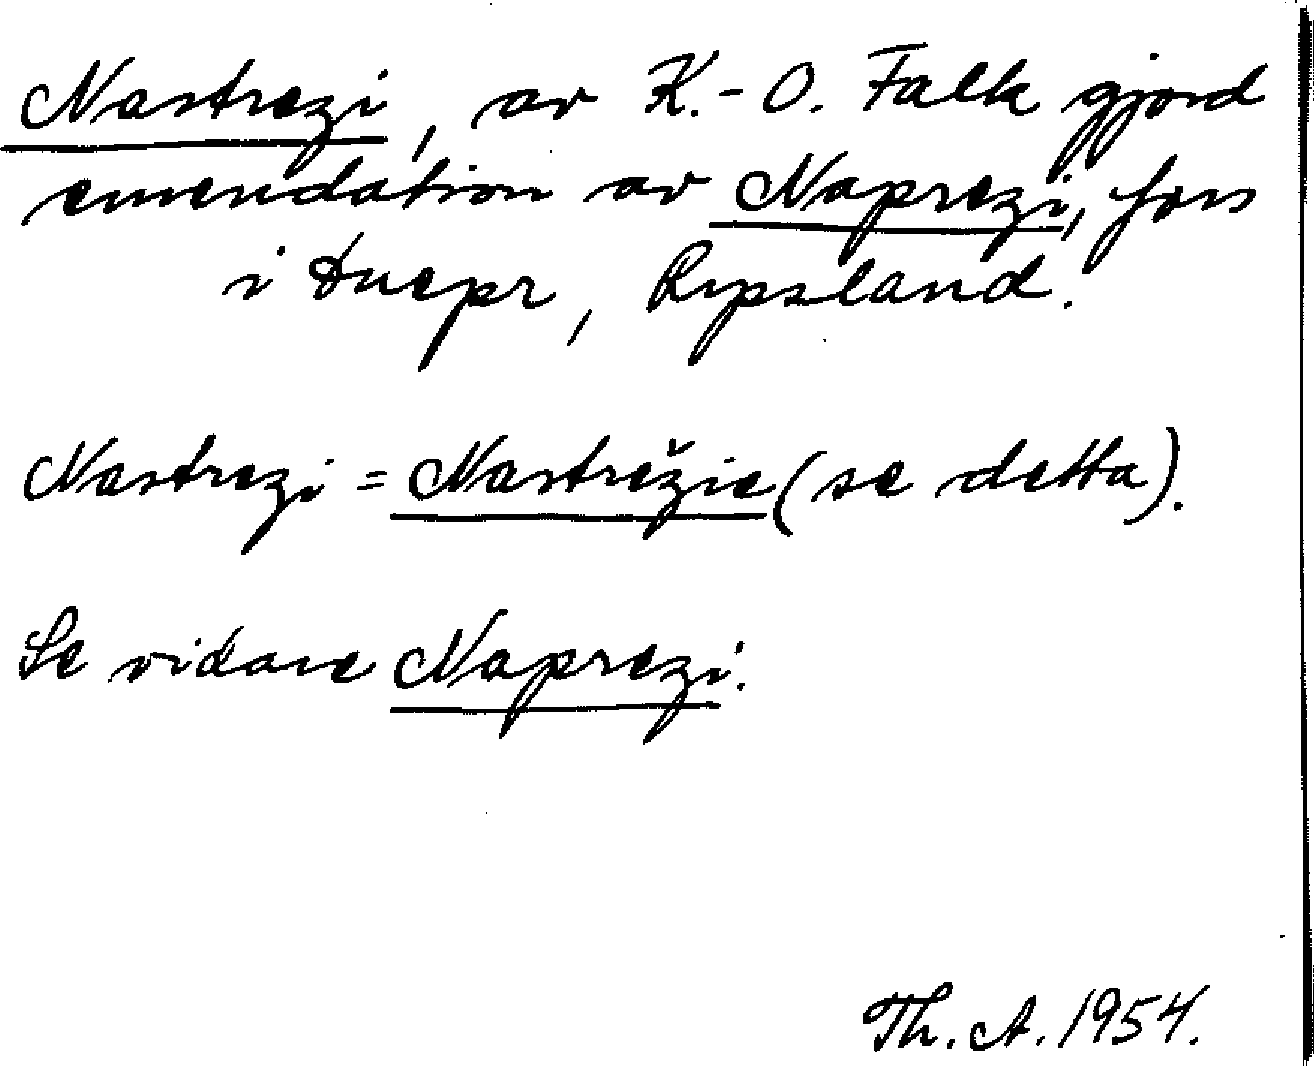 Nastrezi, av K.-O. Falk gjord
emendation av Naprezi, fors
i Dnepr, Ryssland.
Nastrezi = Nastrežie (se detta).
Se vidare Naprezi.
Th. A. 1954.